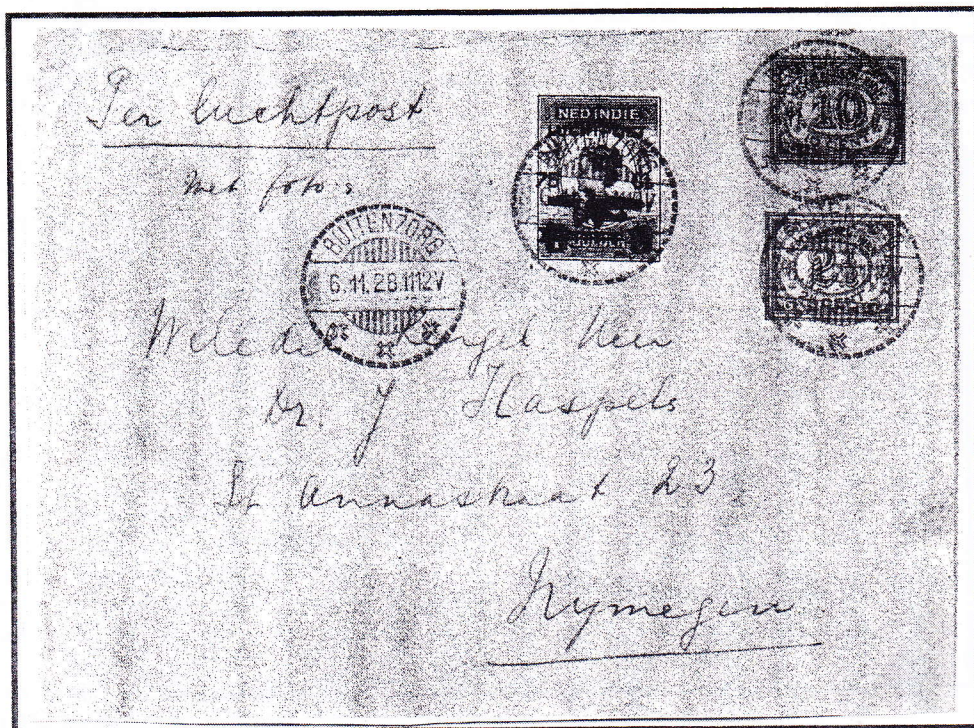 Per luchtpost
Met foto's
NED INDIE
10
2½
BUITENZORG
6.11.28.1112V
Weledel Zeergel Heer
Dr. J Haspels
St Annastraat 23
Nymegen